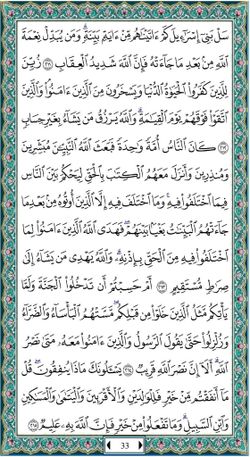 سَلْ بَنِىٓ إِسْرَٰٓءِيلَ كَمْ ءَاتَيْنَٰهُم مِّنْ ءَايَةٍۭ بَيِّنَةٍۗ وَمَن يُبَدِّلْ نِعْمَةَ
ٱللَّهِ مِنۢ بَعْدِ مَا جَآءَتْهُ فَإِنَّ ٱللَّهَ شَدِيدُ ٱلْعِقَابِ ﴿٢١١﴾ زُيِّنَ
لِلَّذِينَ كَفَرُوا۟ ٱلْحَيَوٰةُ ٱلدُّنْيَا وَيَسْخَرُونَ مِنَ ٱلَّذِينَ ءَامَنُوا۟ۘ وَٱلَّذِينَ
ٱتَّقَوْا۟ فَوْقَهُمْ يَوْمَ ٱلْقِيَٰمَةِۗ وَٱللَّهُ يَرْزُقُ مَن يَشَآءُ بِغَيْرِ حِسَابٍ
﴿٢١٢﴾ كَانَ ٱلنَّاسُ أُمَّةً وَٰحِدَةً فَبَعَثَ ٱللَّهُ ٱلنَّبِيِّۦنَ مُبَشِّرِينَ
وَمُنذِرِينَ وَأَنزَلَ مَعَهُمُ ٱلْكِتَٰبَ بِٱلْحَقِّ لِيَحْكُمَ بَيْنَ ٱلنَّاسِ
فِيمَا ٱخْتَلَفُوا۟ فِيهِۚ وَمَا ٱخْتَلَفَ فِيهِ إِلَّا ٱلَّذِينَ أُوتُوهُ مِنۢ بَعْدِ مَا
جَآءَتْهُمُ ٱلْبَيِّنَٰتُ بَغْيًۢا بَيْنَهُمْۖ فَهَدَى ٱللَّهُ ٱلَّذِينَ ءَامَنُوا۟ لِمَا
ٱخْتَلَفُوا۟ فِيهِ مِنَ ٱلْحَقِّ بِإِذْنِهِۦۗ وَٱللَّهُ يَهْدِى مَن يَشَآءُ إِلَىٰ
صِرَٰطٍ مُّسْتَقِيمٍ ﴿٢١٣﴾ أَمْ حَسِبْتُمْ أَن تَدْخُلُوا۟ ٱلْجَنَّةَ وَلَمَّا
يَأْتِكُم مَّثَلُ ٱلَّذِينَ خَلَوْا۟ مِن قَبْلِكُمۖ مَّسَّتْهُمُ ٱلْبَأْسَآءُ وَٱلضَّرَّآءُ
وَزُلْزِلُوا۟ حَتَّىٰ يَقُولَ ٱلرَّسُولُ وَٱلَّذِينَ ءَامَنُوا۟ مَعَهُۥ مَتَىٰ نَصْرُ
ٱللَّهِۗ أَلَآ إِنَّ نَصْرَ ٱللَّهِ قَرِيبٌ ﴿٢١٤﴾ يَسْـَٔلُونَكَ مَاذَا يُنفِقُونَۖ قُلْ
مَآ أَنفَقْتُم مِّنْ خَيْرٍ فَلِلْوَٰلِدَيْنِ وَٱلْأَقْرَبِينَ وَٱلْيَتَٰمَىٰ وَٱلْمَسَٰكِينِ
وَٱبْنِ ٱلسَّبِيلِۗ وَمَا تَفْعَلُوا۟ مِنْ خَيْرٍ فَإِنَّ ٱللَّهَ بِهِۦ عَلِيمٌ ﴿٢١٥﴾
33